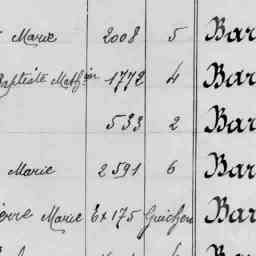 Marie 2008 5 Bar
Baptiste Math.in 1772 4 Bar
533 2 Bar
Marie 2591 6 Bar
Marie Ex 175 Guichen Bar
Bar